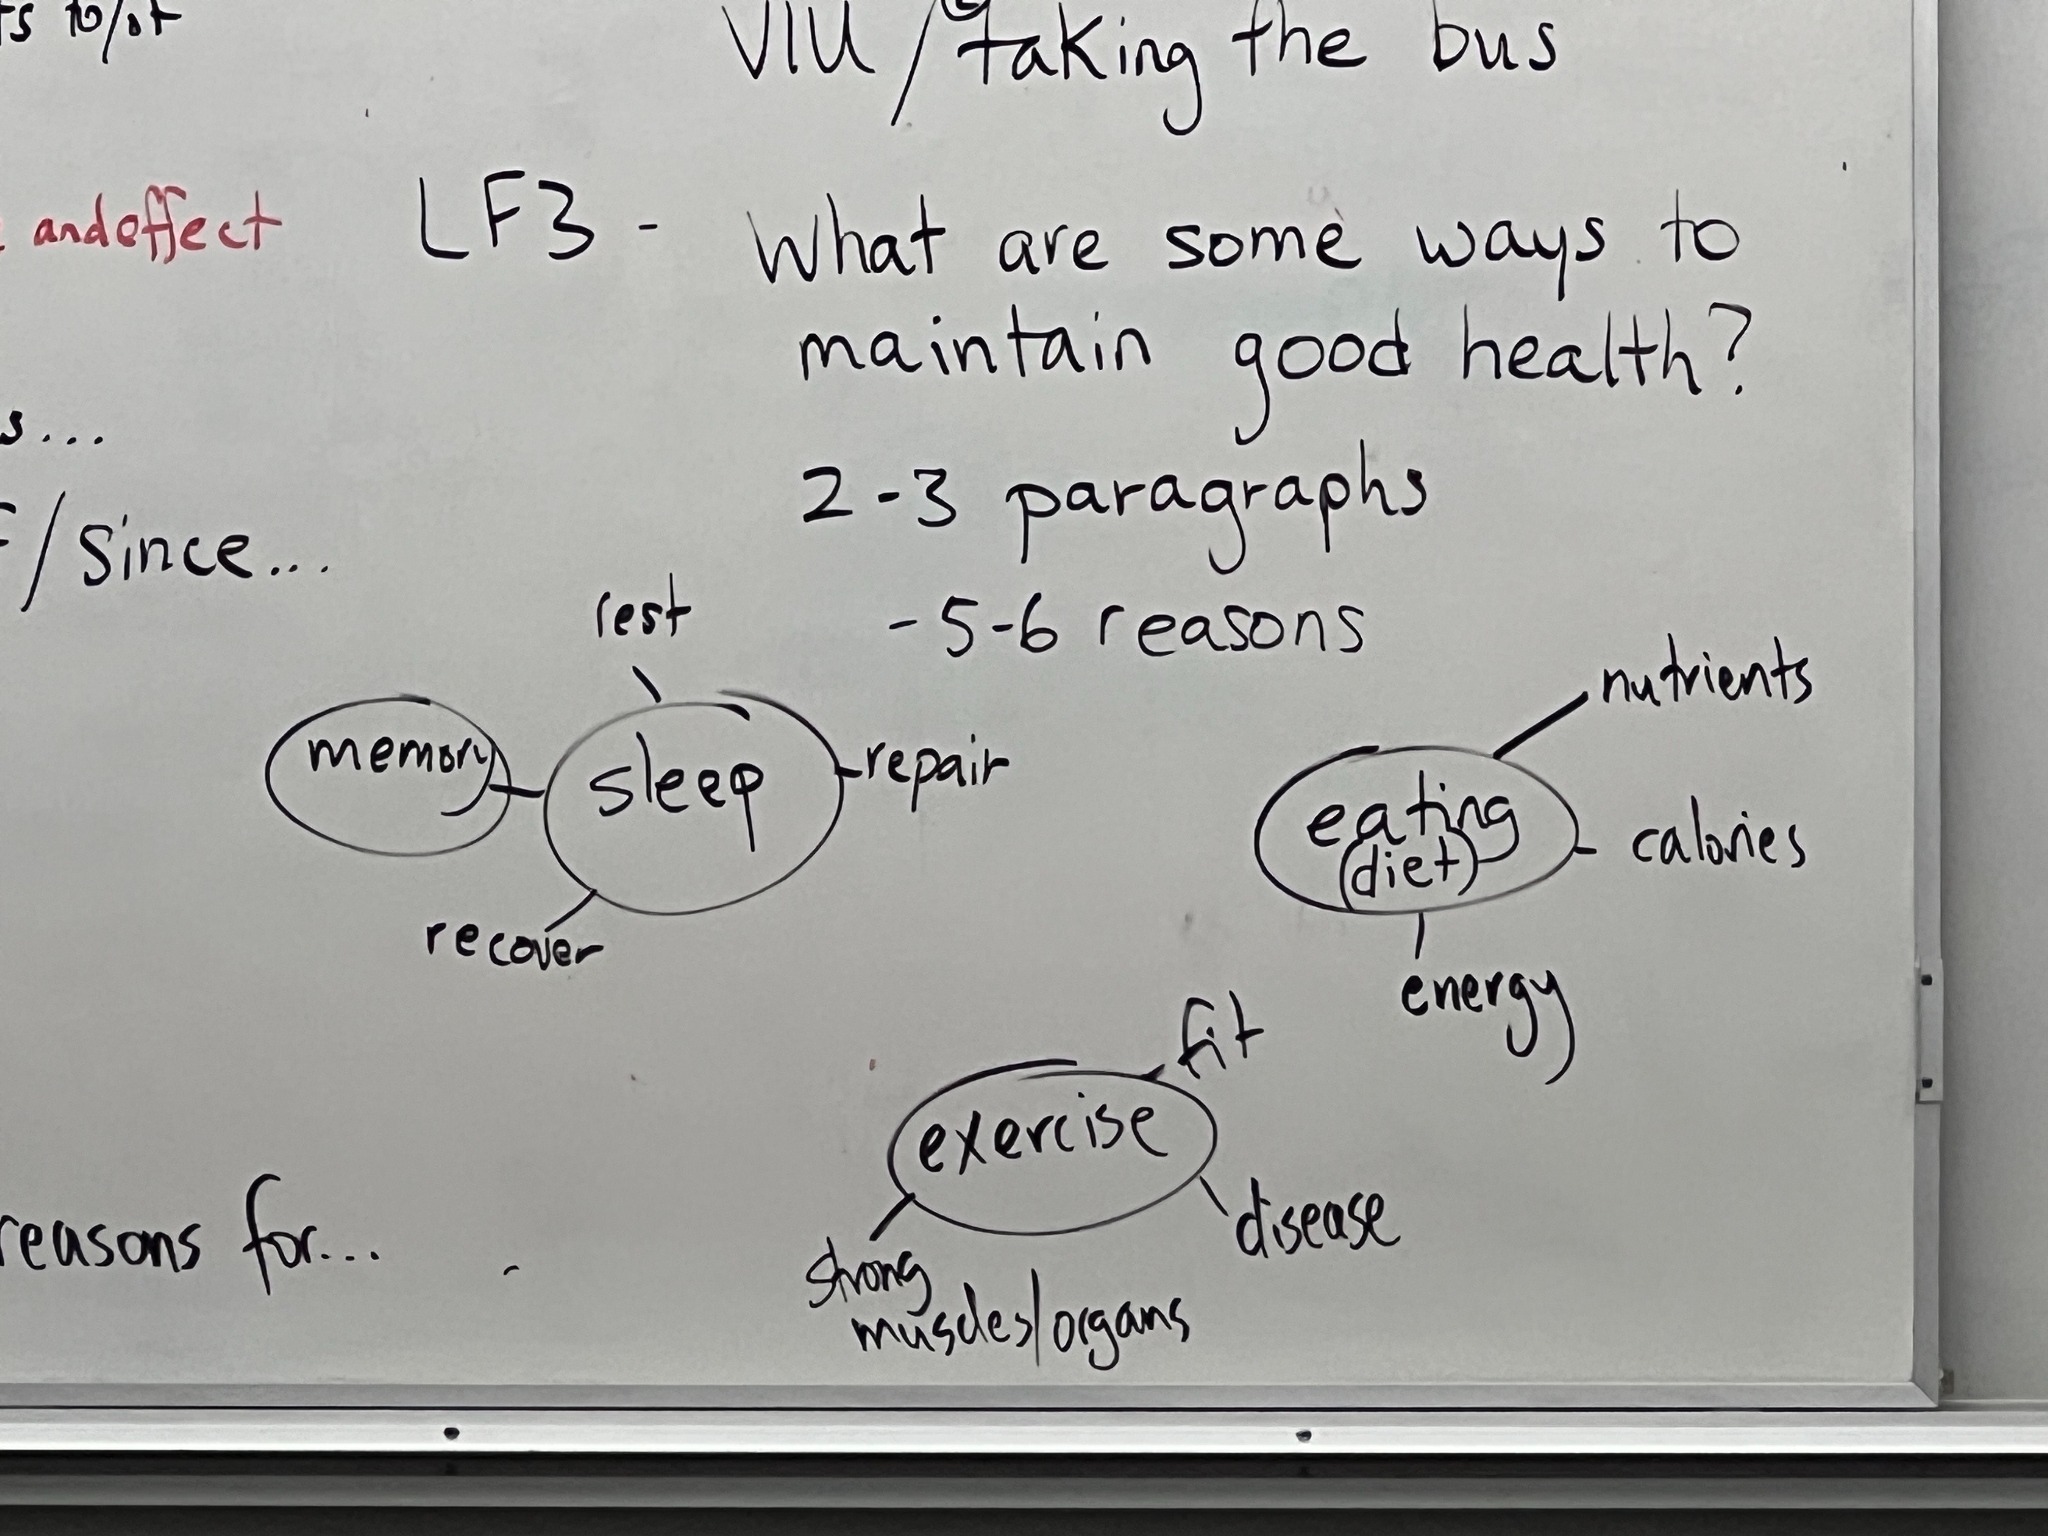 to/of
VIU / taking the bus
and effect
LF3 - What are some ways to
maintain good health?
s...
2-3 paragraphs
/ Since...
- 5-6 reasons
rest
nutrients
memory
sleep
repair
eating
(diet)
calories
recover
energy
fit
exercise
disease
strong
muscles/organs
reasons for...